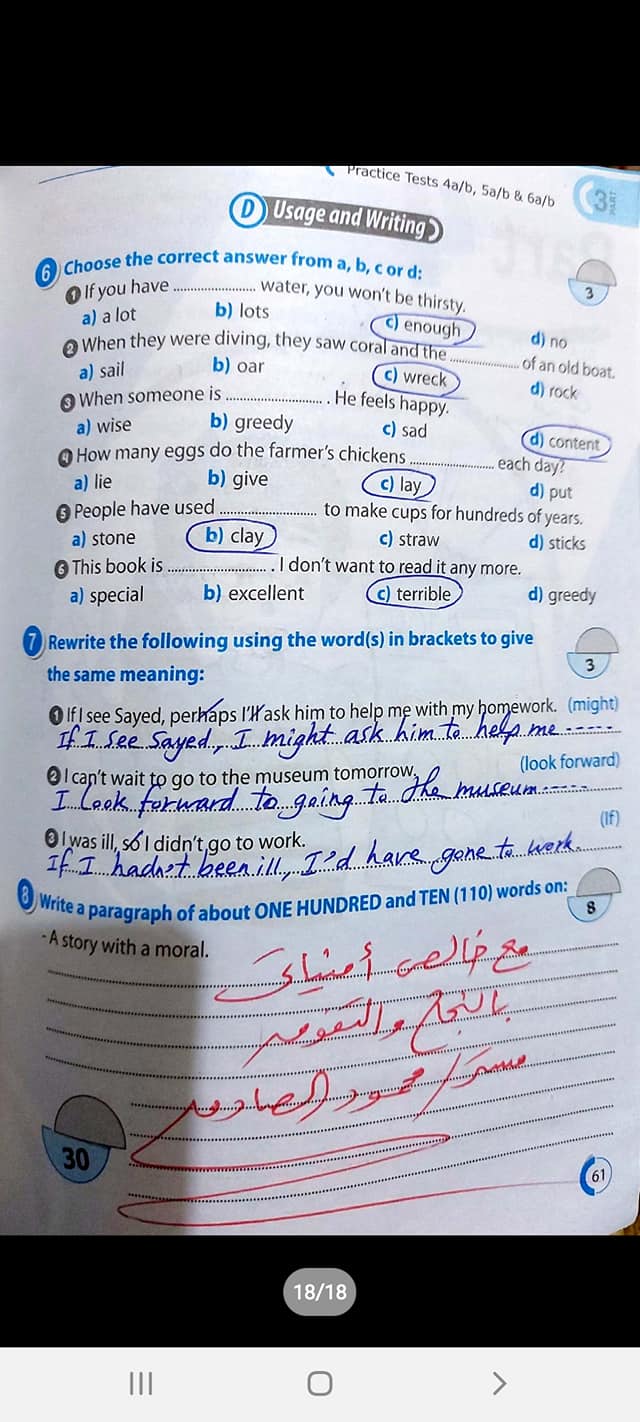 Practice Tests 4a/b, 5a/b & 6a/b
PART 3
D Usage and Writing
6 Choose the correct answer from a, b, c or d:
3
1 If you have ........................ water, you won't be thirsty.
a) a lot b) lots c) enough d) no
2 When they were diving, they saw coral and the ........................ of an old boat.
a) sail b) oar c) wreck d) rock
3 When someone is ........................ . He feels happy.
a) wise b) greedy c) sad d) content
4 How many eggs do the farmer's chickens ........................ each day?
a) lie b) give c) lay d) put
5 People have used ........................ to make cups for hundreds of years.
a) stone b) clay c) straw d) sticks
6 This book is ........................ . I don't want to read it any more.
a) special b) excellent c) terrible d) greedy
7 Rewrite the following using the word(s) in brackets to give
the same meaning:
3
1 If I see Sayed, perhaps I'll ask him to help me with my homework. (might)
If I see Sayed, I might ask him to help me -----
2 I can't wait to go to the museum tomorrow. (look forward)
I look forward to going to the museum -----
3 I was ill, so I didn't go to work. (If)
If I hadn't been ill, I'd have gone to work.
8 Write a paragraph of about ONE HUNDRED and TEN (110) words on:
8
- A story with a moral.
مع خالص أمنياتى
بالنجاح والتفوق
مستر/ محمود
30
61
18/18